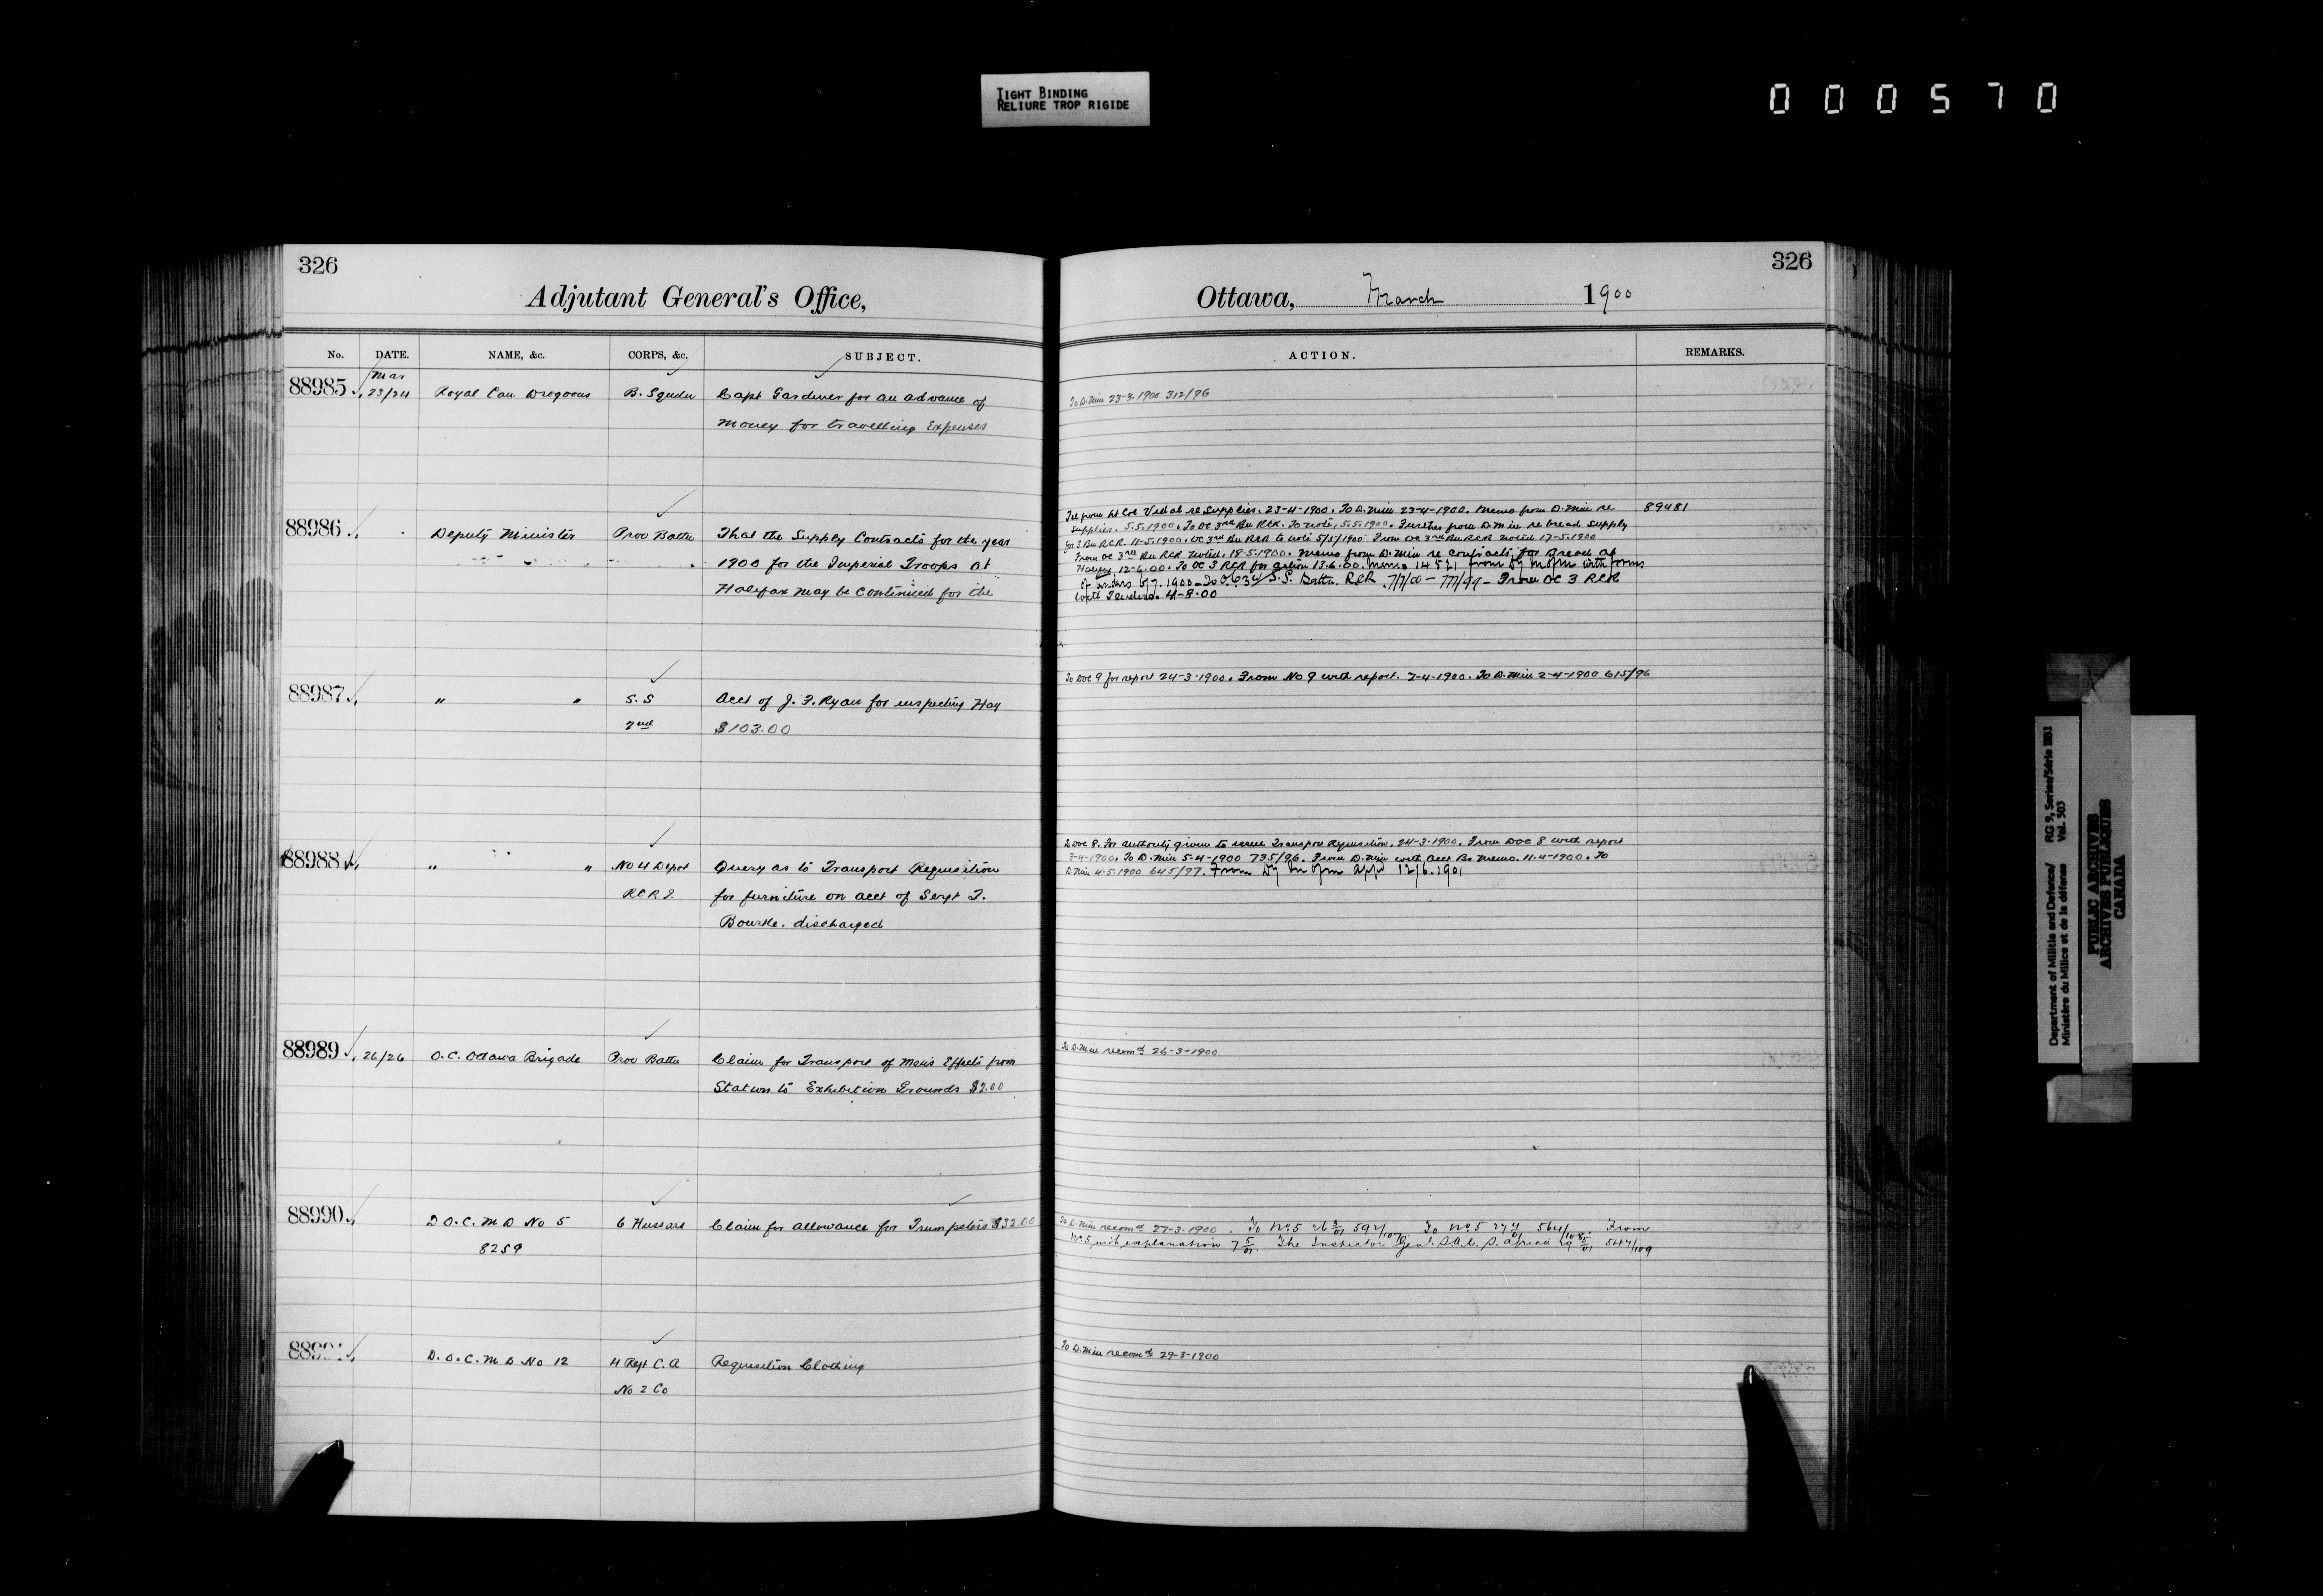 TIGHT BINDING
RELIURE TROP RIGIDE
000570
326
Adjutant General's Office,
No. DATE. NAME, &c. CORPS, &c. SUBJECT.
Mar
88985 23/24 Royal Can Dragoons B. Squdn Capt Gardener for an advance of
money for travelling Expenses
88986 Deputy Minister Prov Battn That the Supply Contracts for the year
1900 for the Imperial Troops at
Halifax may be continued for the
88987 " " S.S Acct of J. F. Ryan for inspecting Hay
2nd $103.00
88988 " " No 4 Depot Query as to Transport Requisition
RCRI. for furniture on acct of Sergt T.
Bourke. discharged
88989 26/26 O.C. Ottawa Brigade Prov Battn Claim for Transport of Men's Effects from
Station to Exhibition Grounds $2.00
88990 D.O.C. M D No 5 6 Hussars Claim for allowance for Trumpeters $32.00
8259
88991 D.O.C. M D No 12 4 Regt C.A Requisition Clothing
No 2 Co
326
Ottawa, March 1900
ACTION. REMARKS.
To D. Min 23-3-1900 312/96
Tel from Lt Col Vidal re Supplies. 23-4-1900. To D. Min 23-4-1900. Memo from D. Min re 89481
Supplies. 5.5.1900. To OC 3rd Bn RCR. To note, 5.5.1900. Further from D Min re bread supply
for 3 Bn RCR. 11-5.1900. OC 3rd Bn RCR to note 5/5/1900 From OC 3rd Bn RCR noted 17-5.1900
From OC 3rd Bn RCR noted. 18-5.1900. Memo from D. Min re contracts for Bread at
Halifax 12-6.00. To OC 3 RCR for action 13.6.00. Memo 14521 from Dy M with forms
of tenders 6/7.1900 - To S.S. Battn. RCR 7/7/00 - 777/99 - From OC 3 RCR
with Tenders. 4-8-00
To DOC 9 for report 24-3-1900. From No 9 with report. 2-4-1900. To D. Min 2-4-1900 615/96
To DOC 8. For authority given to issue Transport Requisition. 24-3-1900. From DOC 8 with report
3-4-1900. To D. Min 5-4-1900 735/96. From D. Min with Acct Br Memo. 11-4-1900. To
D Min 4-5-1900 645/97. From Dy M appd 12/6.1901
To D. Min recomd 26-3-1900
To D. Min recomd 27-3-1900. To No 5 26 3/01 592/107 To No 5 27 4/01 564/108 From
No 5 with explanation 7 5/01. The Inspector Genl. S.A.C. S. Africa 29 5/01 547/109
To D. Min recomd 29-3-1900
Department of Militia and Defence/ RG 9, Series/Série IIB1
Ministère du Milice et de la défense Vol. 503
PUBLIC ARCHIVES
ARCHIVES PUBLIQUES
CANADA